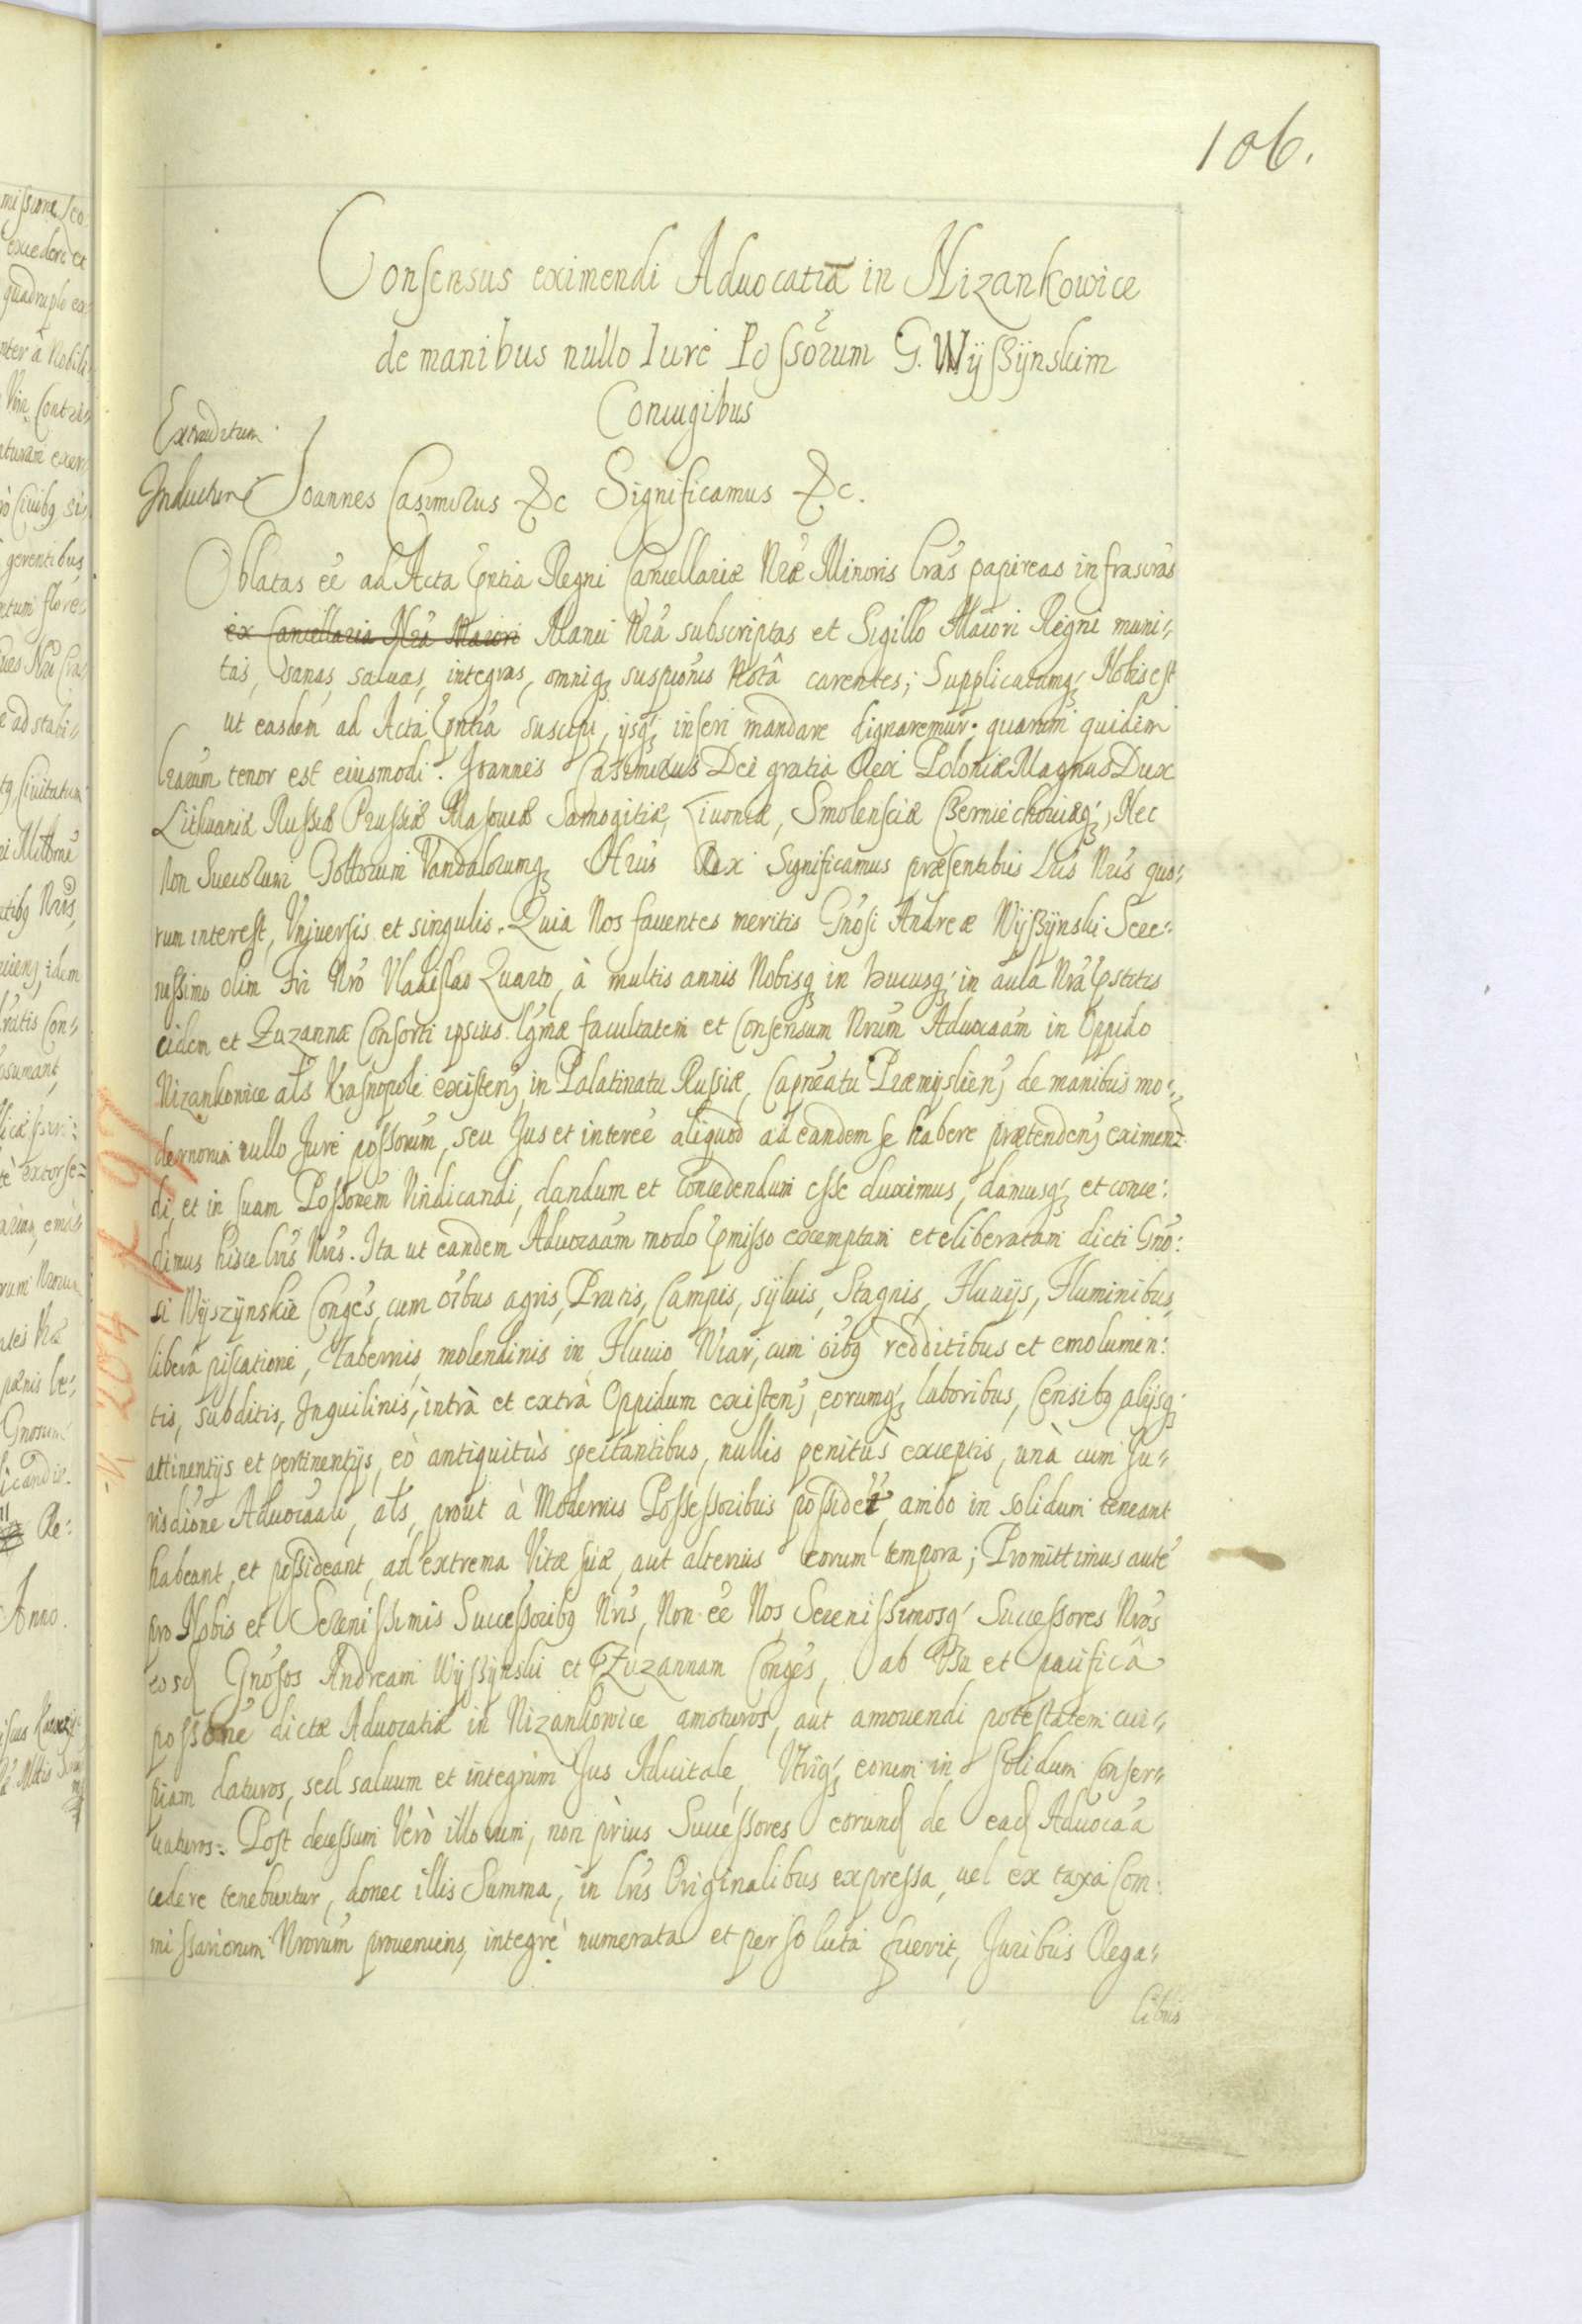 106.
Consensus eximendi Aduocatiã in Nizankowice
de manibus nullo Iure Possõrum G. Wyszÿnskim
Coniugibus
Extraditum
Inductum
Joannes Casimirus &c Significamus &c.
Oblatas eẽ ad Acta pntia Regni Cancellariæ Nræ Minoris lras papireas infrascras
ex Cancellaria Nra Maiori Manu Nra subscriptas et Sigillo Maiori Regni muni-
tas, sanas, saluas, integras, omniq; suspionis Notâ carentes; Supplicatumq; Nobis est
ut easdem ad Acta pntia suscipi, ijsq; inseri mandare dignaremur. quarum quidem
lrarum tenor est eiusmodi. Joannes Casimirus Dei gratia Rex Poloniæ Magnus Dux
Lithuaniæ Russiæ Prussiæ Masouiæ Samogitiæ, Liuoniæ, Smolensciæ Czerniechouiæq;, Nec
Non Suecorum Gottorum Vandalorumq; Hrius Rex Significamus præsentibus Lris Nris quo-
rum interest, Vniuersis et singulis. Quia Nos fauentes meritis Gnosi Andreæ Wyszÿnski Sere-
nissimo olim Fri Nro Vladislao Quarto, à multis annis Nobisq; in hucusq; in aula Nra pstitis
eidem et Zuzannæ Consorti ipsius lgmæ facultatem et Consensum Nrum Aduocaam in Oppido
Nizankowice als Krasnopole existen; in Palatinatu Russiæ, Capneatu Præmÿslien; de manibus mo-
dernorum nullo Jure possorum, seu Jus et intereẽ aliquod ad eandem se habere prætenden; eximen-
di, et in suam Possonem Vindicandi, dandum et concedendum esse duximus, damusq; et conce-
dimus hisce lris Nris. Ita ut eandem Aduocaam modo pmisso exemptam et eliberatam dicti Gno-
si Wyszÿnskie Conges, cum oibus agris, Pratis, Campis, syluis, Stagnis, Fluuijs, Fluminibus,
libera piscatione, Tabernis, molendinis in Fluuio Wiar, cum oibq; redditibus et emolumen-
tis, subditis, Inquilinis, intrà et extrà Oppidum existen;, eorumq; laboribus, Censibq; alijsq;
attinentijs et pertinentijs, eò antiquitùs spectantibus, nullis penitùs exceptis, unà cum Ju-
risdione Aduocaali, als, prout à Modernis Possessoribus possidet, ambo in solidum teneant
habeant, et possideant, ad extrema Vitæ suæ, aut alterius eorum tempora; Promittimus aute
pro Nobis et Serenissimis Successoribq; Nris, Non eẽ Nos, Serenissimosq; Successores Nros
eosd Gnosos Andream Wyszÿnski et Zuzannam Conges, ab Vsu et pacificâ
possone dictæ Aduocatiæ in Nizankowice amoturos, aut amouendi potestatem cui-
piam daturos, sed saluum et integrum Jus Aduitale, Vtriq; eorum in Solidum conser-
uaturos. Post decessum Verò illorum, non priùs Successores eorund de ead Aduocaa
cedere tenebuntur, donec illis Summa, in lris Originalibus expressa, uel ex taxa Com-
missariorum Nrorum proueniens, integrè numerata et persoluta fuerit, Juribus Rega-
libus